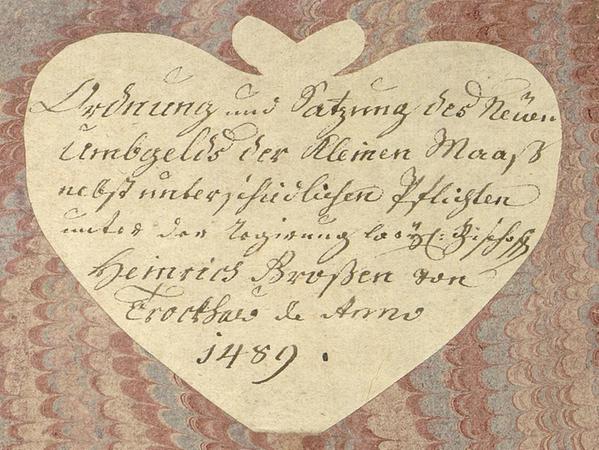 Ordnung und Satzung des Neüen
Umbgelds der Kleinen Maaß
nebst unterschiedlichen Pflichten
unter der Regierung Bischoff
Heinrich Großen von
Trockhau de Anno
1489.